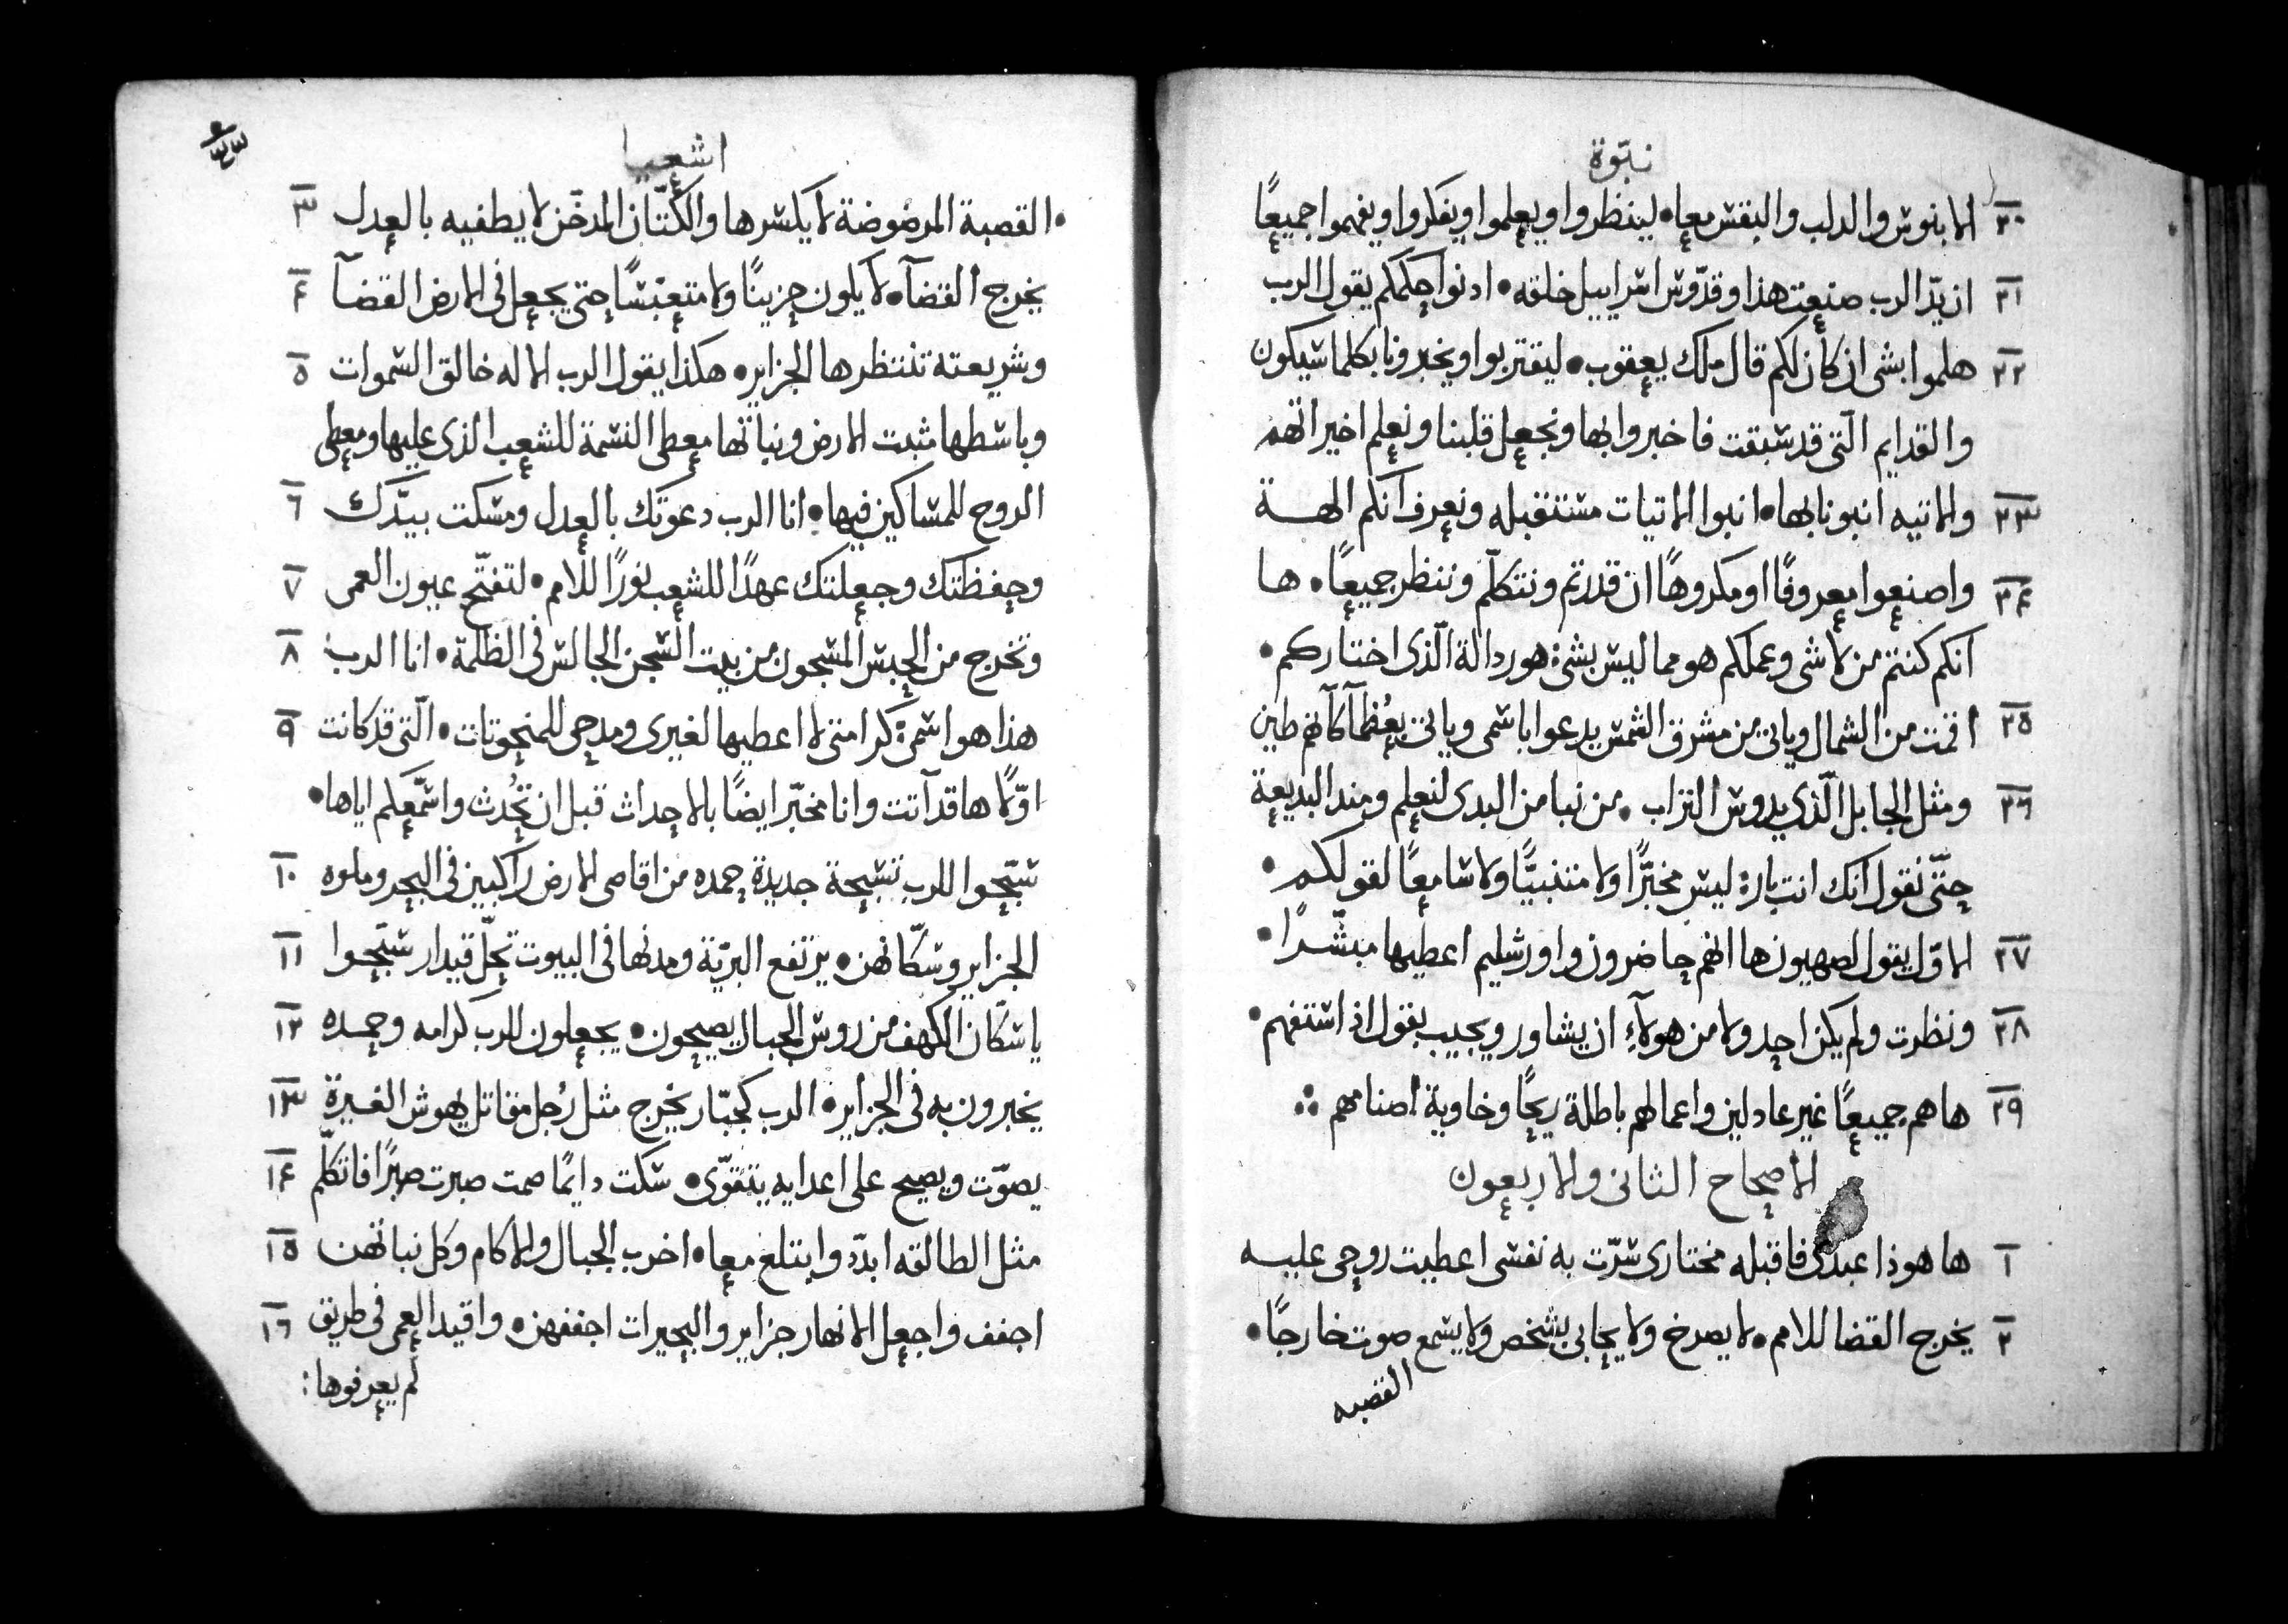 نبّوة
٢٠ الابنوس والدلب والبقس معا • لينظروا ويعلموا ويفكروا ويفهموا جميعًا
٢١ ان يدّ الرب صنعت هذا وقدّوس اسراييل خلقه • ادنوا حكمكم يقول الرب
٢٢ هلموا بشى ان كان لكم قال ملك يعقوب • ليقتربوا ويخبرونا بكلما سيكون
والقدايم الّتى قد سبقت فاخبروا بها ونجعل قلبنا ونعلم اخيراتهم
٢٣ والاتيه انبونا بها • انبوا الاتيات مستقبله ونعرف انكم الهة
٢٤ واصنعوا معروفًا او مكروهًا ان قدرتم ونتكلّم وننظر جميعًا • ها
انكم كنتم من لا شى وعملكم هو مما ليس بشئ هو ردالة الّذى اختاركم •
٢٥ اقمت من الشمال وياتى من مشرق الشمس يدعوا باسمى وياتى بعُظمآ كانهم طين
٢٦ ومثل الجابل الّذى يدوس التراب • من نبا من البدى لنعلم ومند البديعة
حتّى نقول انك انت بارّ ليس مخبّرًا ولا متنبيًّا ولا سامعًا لقولكم •
٢٧ الاوّل يقول لصهيون ها انهم حاضرون واورشليم اعطيها مبشّرًا •
٢٨ ونظرت ولم يكن احد ولا من هولآءِ ان يشاور ويجيب بقول اذ استفهم •
٢٩ ها هم جميعًا غير عادلين واعمالهم باطلة ريحًا وخاوية اصنامهم ∴
الاصحاح الثانى والاربعون
١ ها هوذا عبدى فاقبله مختارى سّرت به نفسى اعطيت روحى عليه
٢ يخرج القضا للامم • لا يصرخ ولا يحابى بشخص ولا يسمع صوت خارجًا •
القصبه
اشعيا
• القصبة المرضوضة لا يكسرها والكتّان المدخّن لا يطفيه بالعدل ٣
يخرج القضآ • لا يكون حزينًا ولا متعبّسًا حتى يجعل فى الارض القضآ ٤
وشريعته تنتظرها الجزاير • هكذا يقول الرب الاله خالق السموات ٥
وباسطها مثبت الارض ونباتها معطى النسمة للشعب الذى عليها ومعطى
الروح للساكين فيها • انا الرب دعوتك بالعدل ومسكت بيدّك ٦
وحفظتك وجعلتك عهدًا للشعب نورًا للامم • لتفتّح عيون العمى ٧
وتخرج من الحبس المسجون من بيت السجن الجالس فى الظلمة • انا الرب ٨
هذا هو اسمى كرامتى لا اعطيها لغيرى ومدحى للمنحوتات • الّتى قد كانت ٩
اوّلًا ها قد آتت وانا مخبّر ايضًا بالاحداث قبل ان تحُدث واسمّعكم اياها •
سبّحوا للرب تسبيحة جديدة حمده من اقاصى الارض راكبين فى البحر وملوه ١٠
الجزاير وسكّانهن • يرتفع البرّية ومدنها فى البيوت تحلّ قيدار سبّحوا ١١
يا سكّان الكهف من روس الجبال يصيحون • يجعلون للرب كرامه وحمده ١٢
يخبرون به فى الجزاير • الرب كجبّار يخرج مثل رُجل مقاتل يهوش الغيرة ١٣
يصوّت ويصيح على اعدايه يتقوّى • سكت دايمًا صمت صبرت صبرًا فاتكلّم ١٤
مثل الطالقه ابدّد وابتلع معا • اخرب الجبال والاكام وكل نباتهن ١٥
اجفف واجعل الانهار جزاير والبحيرات اجففهن • واقيد العمى فى طريق ١٦
لم يعرفوها :